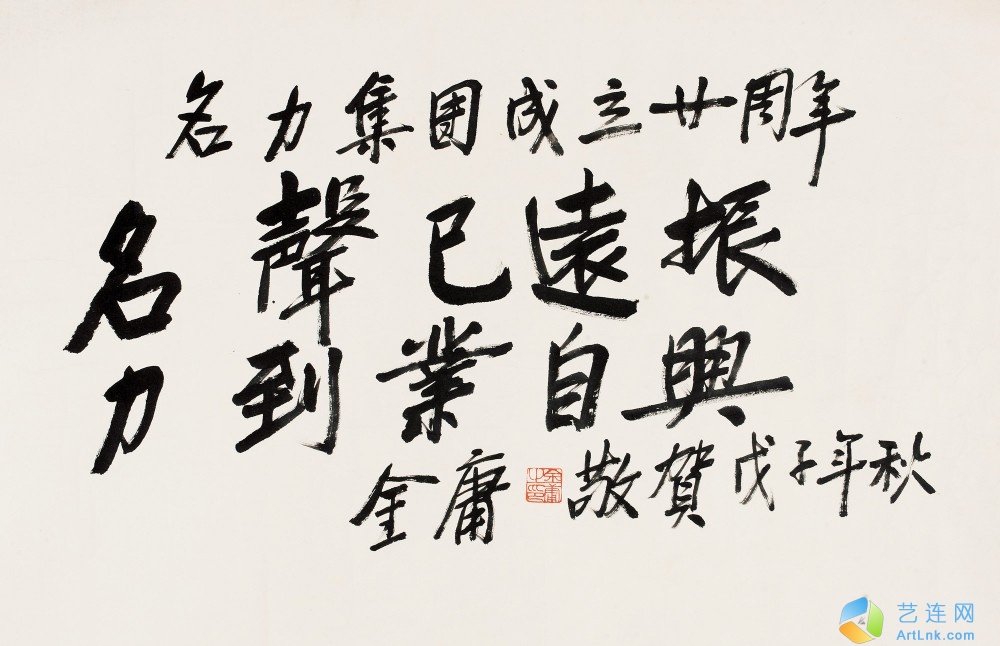 名力集团成立廿周年
名聲已遠振
力到業自興
金庸 敬賀 戊子年秋
金庸之印
艺连网
ArtLnk.com